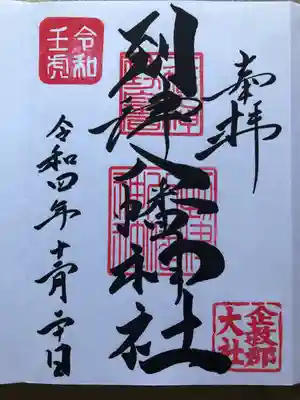 奉拝
到津八幡神社
令和四年十一月二十日
令和
壬寅
企救郡
大社